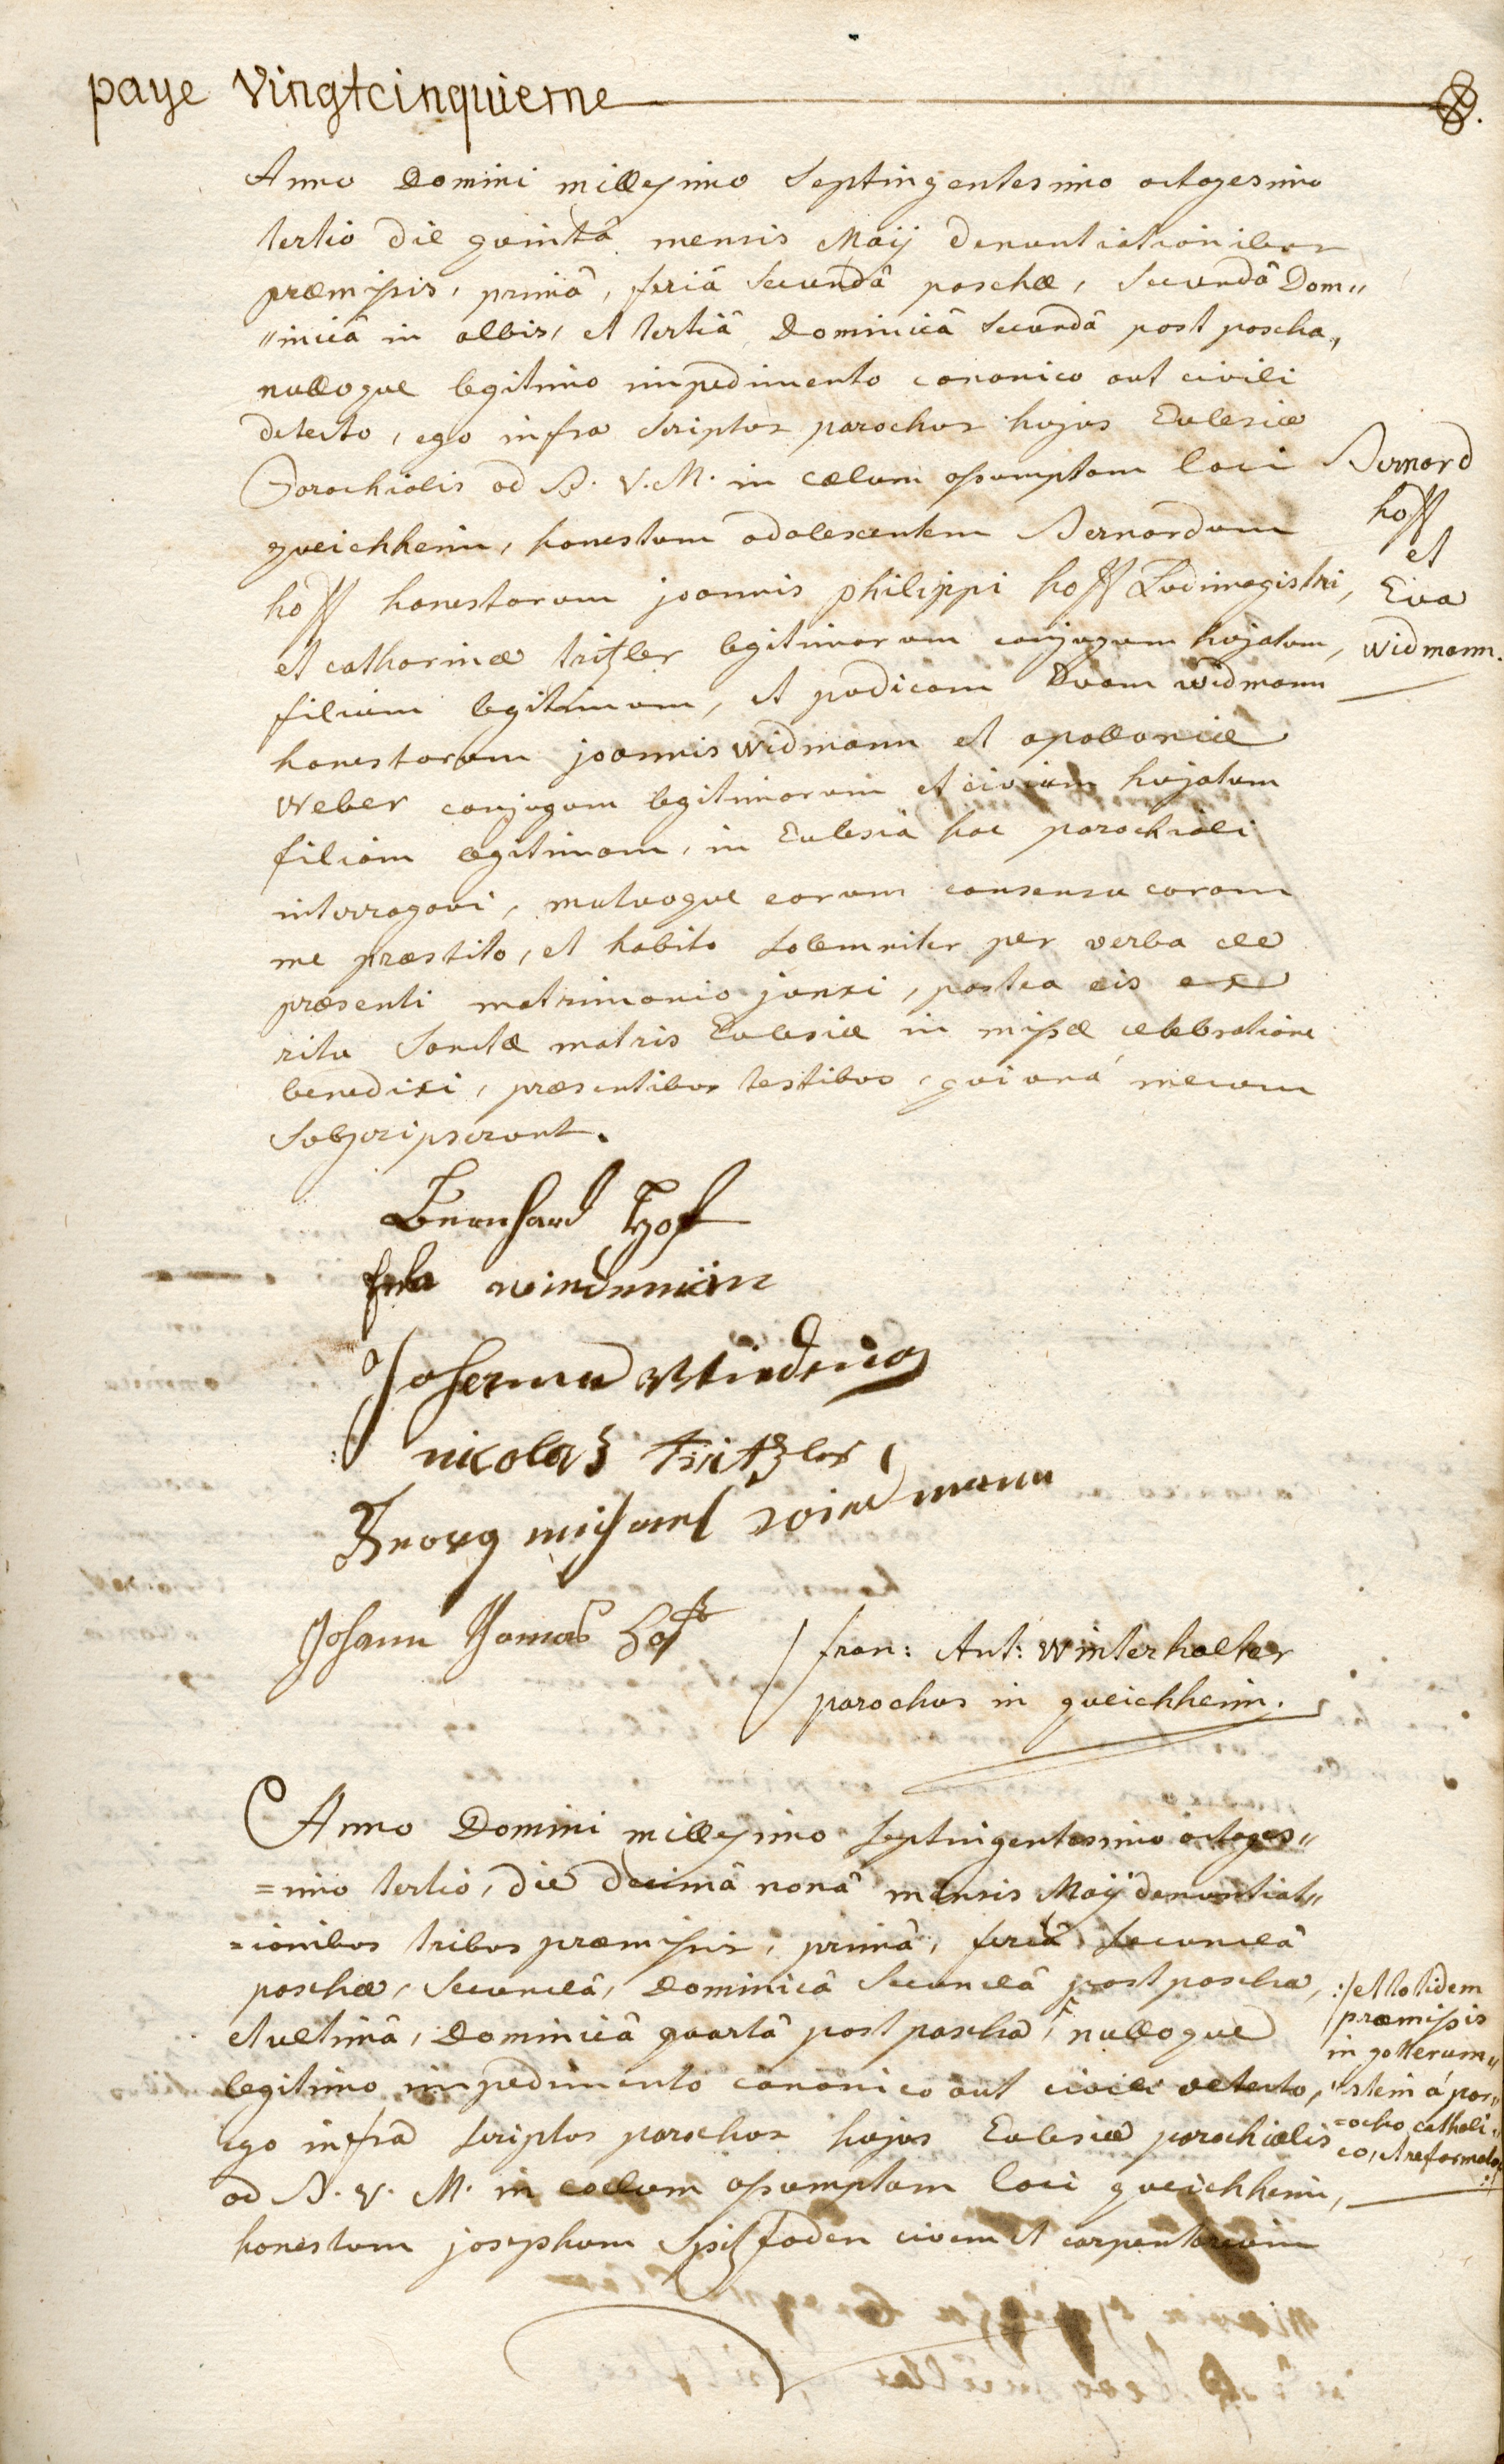 page vingtcinquieme
Anno Domini millesimo septingentesimo octogesimo
tertio die quintâ mensis Maij denuntiationibus
præmissis, primâ, feriâ secundâ paschæ, secundâ Dom„
„inicâ in albis, et tertiâ Dominicâ secundâ post pascha,
nulloque legitimo impedimento canonico aut civili
detecto, ego infra scriptus parochus hujus Ecclesiæ
Parochialis ad B. V. M. in cælum assumptam loci
gueichheim, honestum adolescentem Bernardum
hoff honestorum joannis philippi hoff Ludimagistri,
et catharinæ tritzler legitimorum conjugum hujatum,
filium legitimum, et pudicam Evam widmann
honestorum joannis widmann et apolloniæ
weber conjugum legitimorum et civium hujatum
filiam legitimam, in Ecclesiâ hac parochiali
interrogavi, mutuoque eorum consensu coram
me præstito, et habito solemniter per verba de
præsenti matrimonio junxi, postea eis ex
ritu Sanctæ matris Ecclesiæ in missæ celebratione
benedixi, præsentibus testibus, qui unâ mecum
subscripserunt.
Bernard
hoff
et
Eva
widmann.
Bernhard Hof
Efa windmnin
Johannes
nicolas Tritzler
Georg michael widmann
Johann Thomas Hoff
fran: Ant: winterhalter
parochus in gueichheim.
Anno Domini millesimo septingentesimo octoges„
=imo tertio, die decimâ nonâ mensis Maij denuntiat„
=ionibus tribus præmissis, primâ, feriâ secundâ
paschæ, secundâ, Dominicâ secundâ post pascha,
et ultimâ, Dominicâ quartâ post pascha, nulloque
legitimo impedimento canonico aut civili detecto,
ego infra scriptus parochus hujus Ecclesiæ parochialis
ad B. V. M. in cælum assumptam loci gueichheim,
honestum josephum Spitzfaden civem et carpentarium
:/et totidem
præmissis
in gotteram„
„stein á par„
=ocho catholi„
co, et reformato